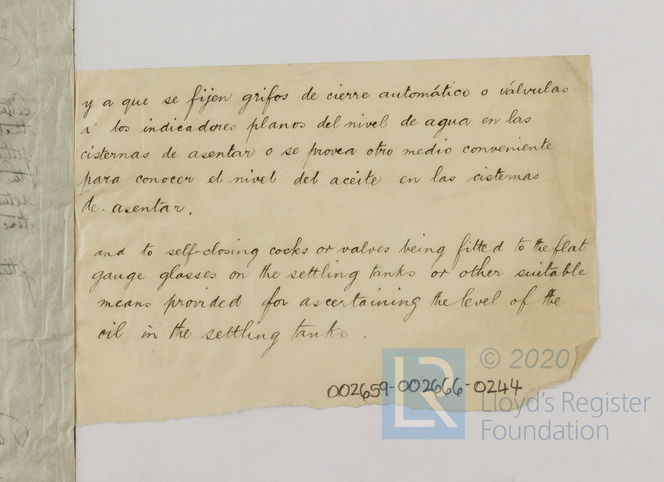 y a que se fijen grifos de cierre automático o válvulas
a los indicadores planos del nivel de agua en las
cisternas de asentar o se provea otro medio conveniente
para conocer el nivel del aceite en las cisternas
de asentar.
and to self-closing cocks or valves being fitted to the flat
gauge glasses on the settling tanks or other suitable
means provided for ascertaining the level of the
oil in the settling tanks.
002659-002666-0244
LR
© 2020
Lloyd's Register
Foundation